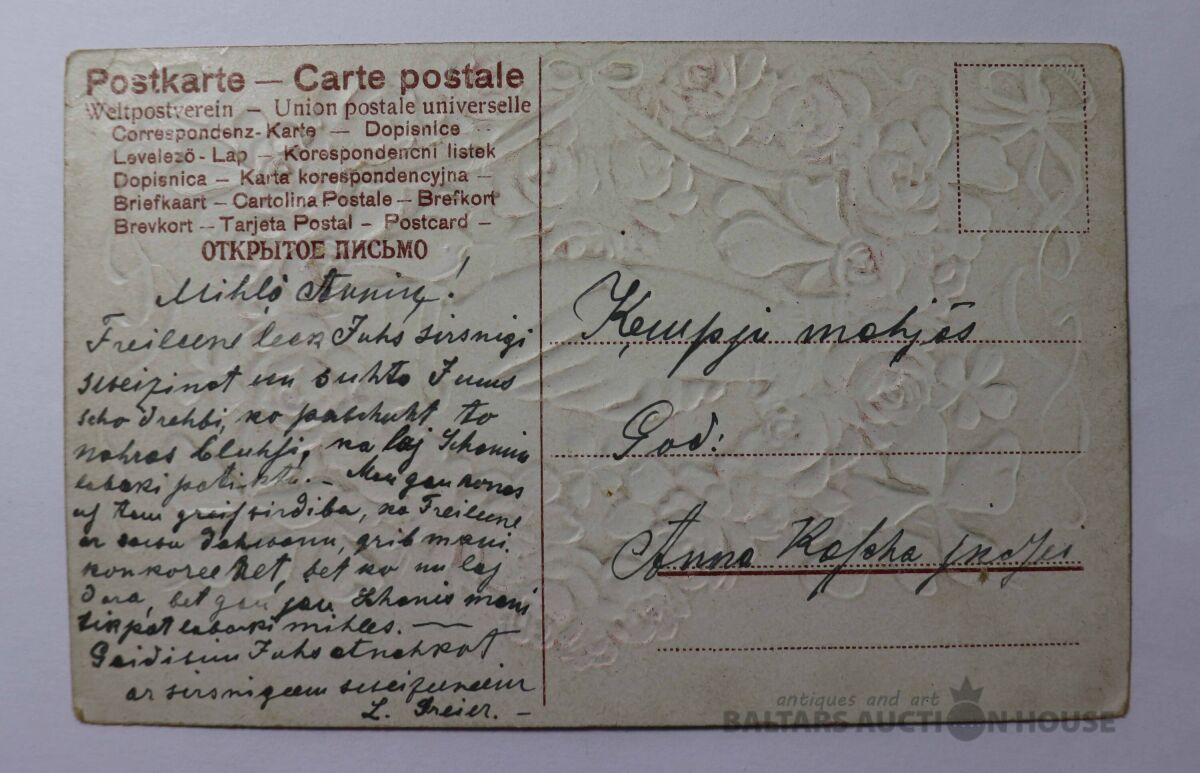 Postkarte — Carte postale
Weltpostverein — Union postale universelle
Correspondenz-Karte — Dopisnice
Levelező-Lap — Korespondencni listek
Dopisnica — Karta korespondencyjna —
Briefkaart — Cartolina Postale — Brefkort
Brevkort — Tarjeta Postal — Postcard —
ОТКРЫТОЕ ПИСЬМО
Mihļā
Freilene leek Juhs sirsnigi
sweizinat un suhta Jums
scho drehbi, no
nahras bluhsi, na laj Schanin
labaki patiktu. — Man gan
uf tam greissirdiba, ka Freilene
ar sawu dahwanu, grib mani
bet ko nu laj
dara, bet gan jau Schanis mani
tikpat labaki mihles. —
Gaidisim Juhs atnahkot
ar sirsnigeem sweizeeneem
L. Freier. —
Ķempju mahjās
God:
Anna Kascha
antiques and art
BALTARS AUCTION HOUSE